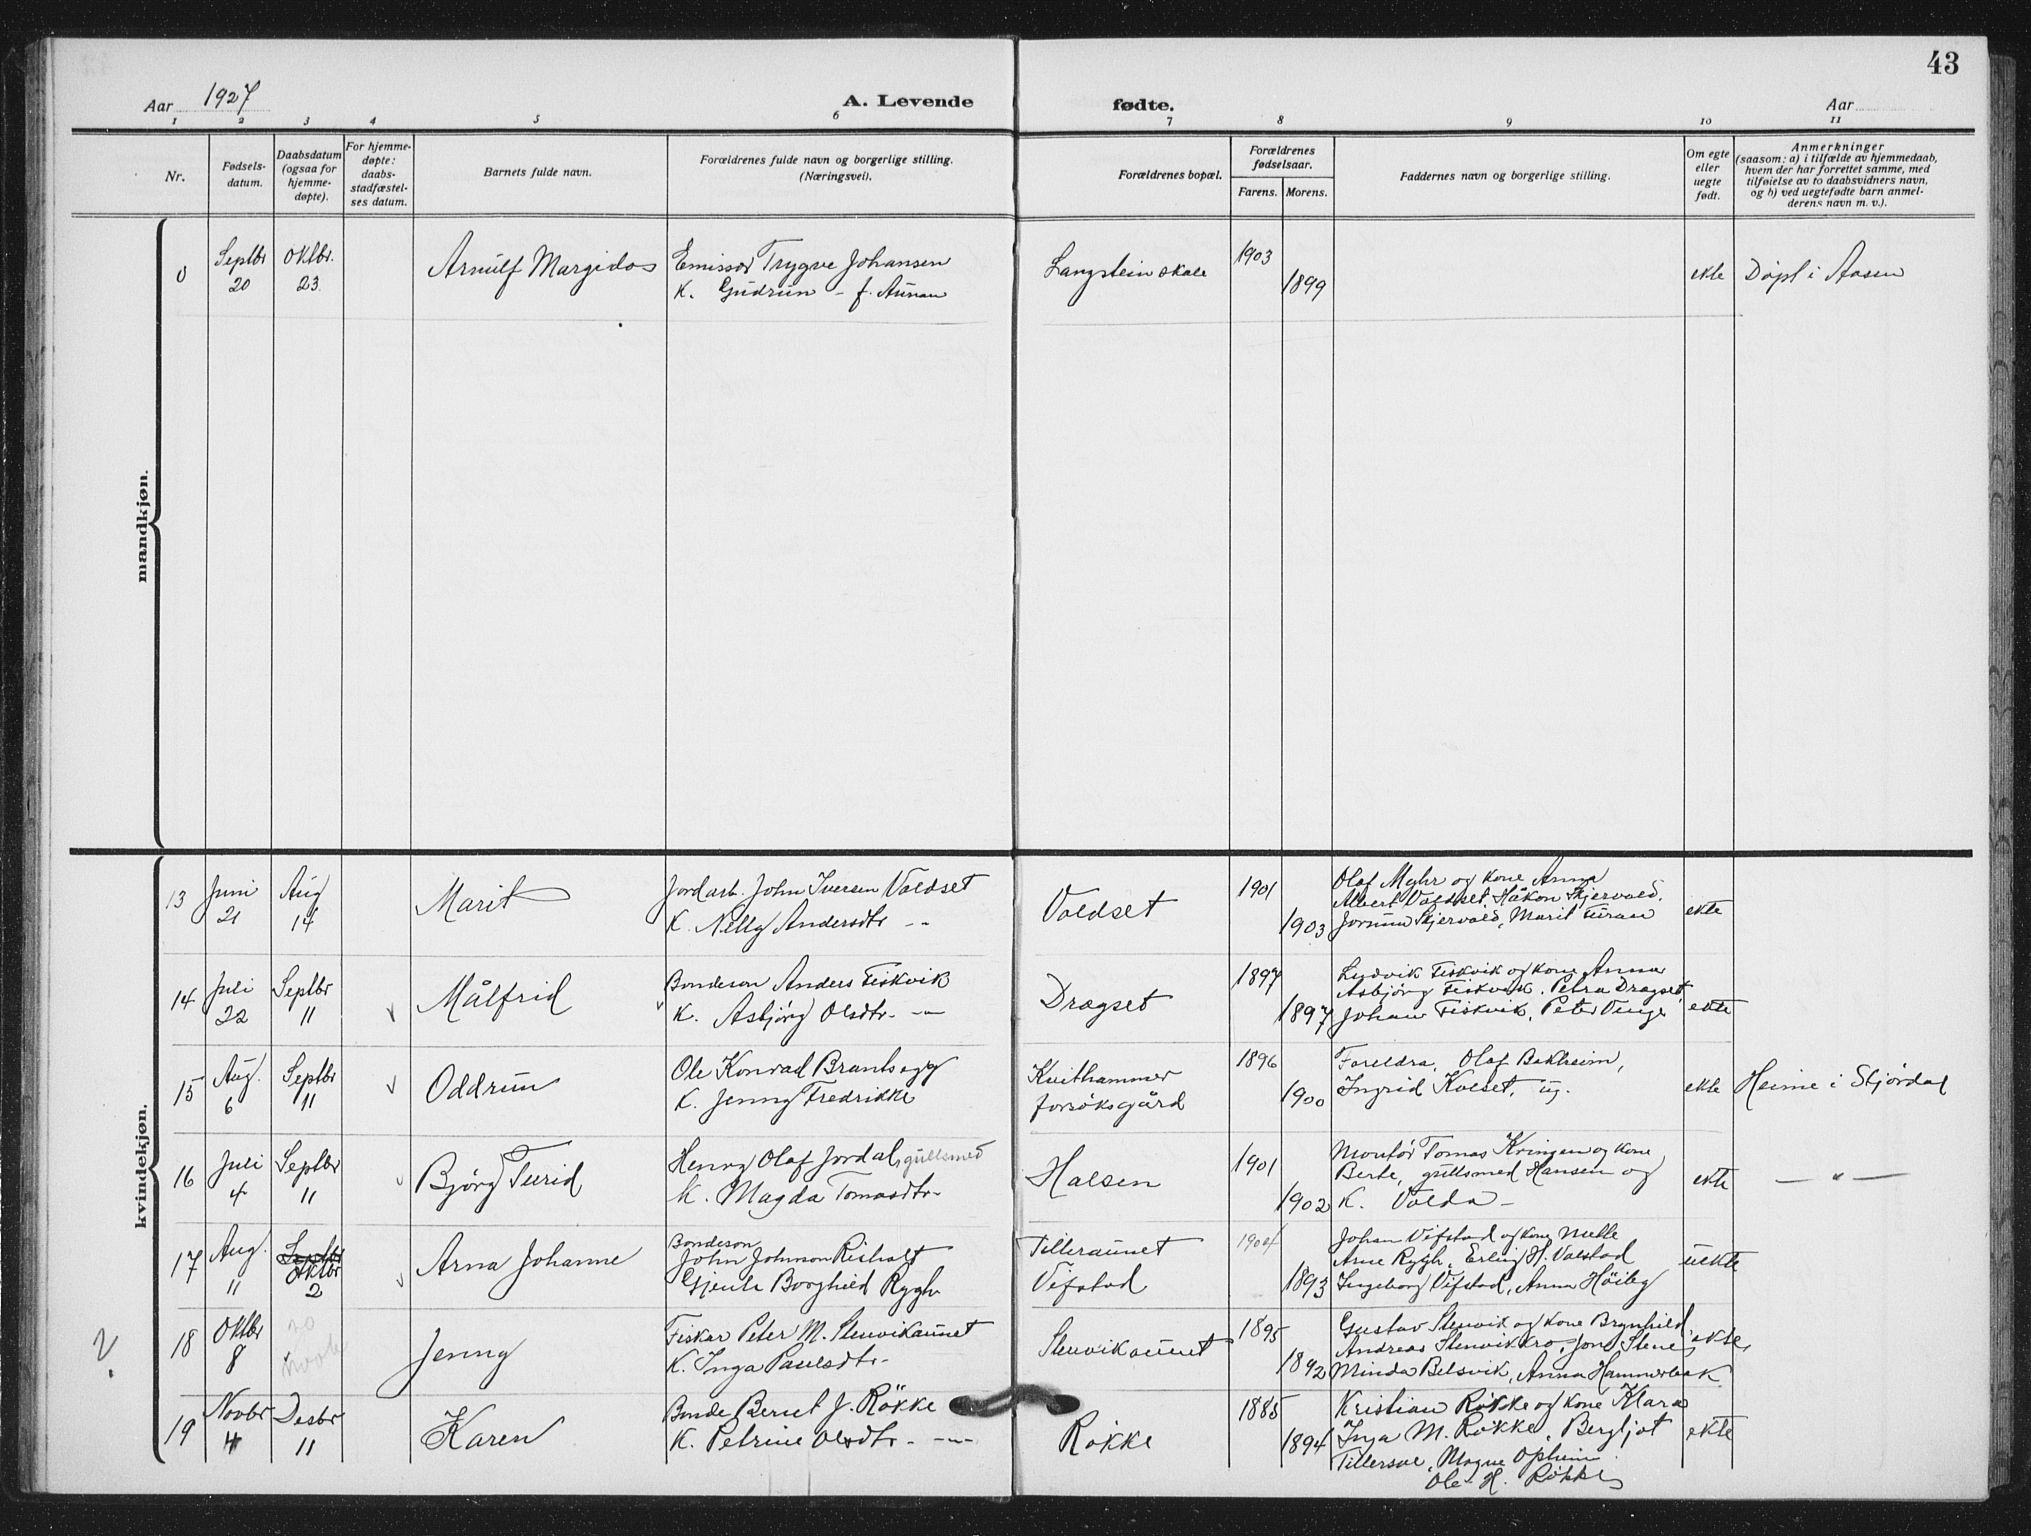 43
Aar 1927
A. Levende fødte.
Aar
1 2 3 4 5 6 7 8 9 10 11
Nr.
Fødsels-
datum.
Daabsdatum
(ogsaa for
hjemme-
døpte).
For hjemme-
døpte:
daabs-
stadfæstel-
ses datum.
Barnets fulde navn.
Forældrenes fulde navn og borgerlige stilling.
(Næringsvei).
Forældrenes bopæl.
Forældrenes
fødselsaar.
Farens. Morens.
Faddernes navn og borgerlige stilling.
Om egte
eller
uegte
født.
Anmerkninger
(saasom: a) i tilfælde av hjemmedaab,
hvem der har forrettet samme, med
tilføielse av to daabsvidners navn,
og b) ved uegtefødte barn anmel-
derens navn m. v.).
mandkjøn.
0
Septbr
20
Oktbr.
23
Arnulf Margidos
Emissær Trygve Johansen
K. Gudrun - f. Aunan
Langstein skole
1903
1899
ekte
Døpt i Aasen
kvindekjøn.
13
Juni
21
Aug
14
Marit
Jordarb. John Iversen Voldset
K. Nelly Andersdtr - -
Voldset
1901
1903
Olaf Myhr og kone Anna
Albert Voldset, Håkon Skjervold,
Jorunn Skjervold, Marit Furan
ekte
14
Juli
22
Septbr
11
Målfrid
Bondeson Anders Fiskvik
K. Asbjørg Olsdtr. - -
Dragset
1897
1897
Ludvik Fiskvik og kone Anna
Asbjørg Fiskvik, Petra Dragset,
Johan Fiskvik, Peter Venge
ekte
15
Aug.
6
Septbr
11
Oddrun
Ole Konrad Brantsegg
K. Jenny Fredrikke
Kvithammer
forsøksgård
1896
1900
Foreldra, Olaf Bakheim,
Ingrid Kolset, ug.
ekte
Heime i Stjørdal
16
Juli
4
Septbr
11
Bjørg Turid
Henry Olaf Jordal, gullsmed
K. Magda Tomasdtr-
Halsen
1901
1902
Montør Tomas Kringen og kone
Berte, gullsmed Hansen og
K. Valda -
ekte
— " —
17
Aug.
11
Septbr
Oktbr
2
Arna Johanne
Bondeson
John Johnson Risholt
Gjente Borghild Rygh
Tilleraunet
Vifstad
1904
1893
Johan Vifstad og kone Mette
Arne Rygh, Erling H. Valstad
Ingeborg Vifstad, Anna Høiby
uekte
18
Oktbr
8
20
Novbr
Jenny
Fiskar Peter M. Stenvikaunet
K. Inga Paulsdtr-
Stenvikaunet
1895
1892
Gustav Stenvik og kone Brynhild
Andreas Stenvikkro, Jon Stene,
Minda Belsvik, Anna Hammerbak
ekte
?
19
Novbr
4
Desbr
11
Karen
Bonde Bernt J. Røkke
K. Petrine Olsdtr. - - -
Røkke
1885
1894
Kristian Røkke og kone Klara
Inga M. Røkke, Bergljot
Tillersoe, Magne Opheim
Ole H. Røkke
ekte